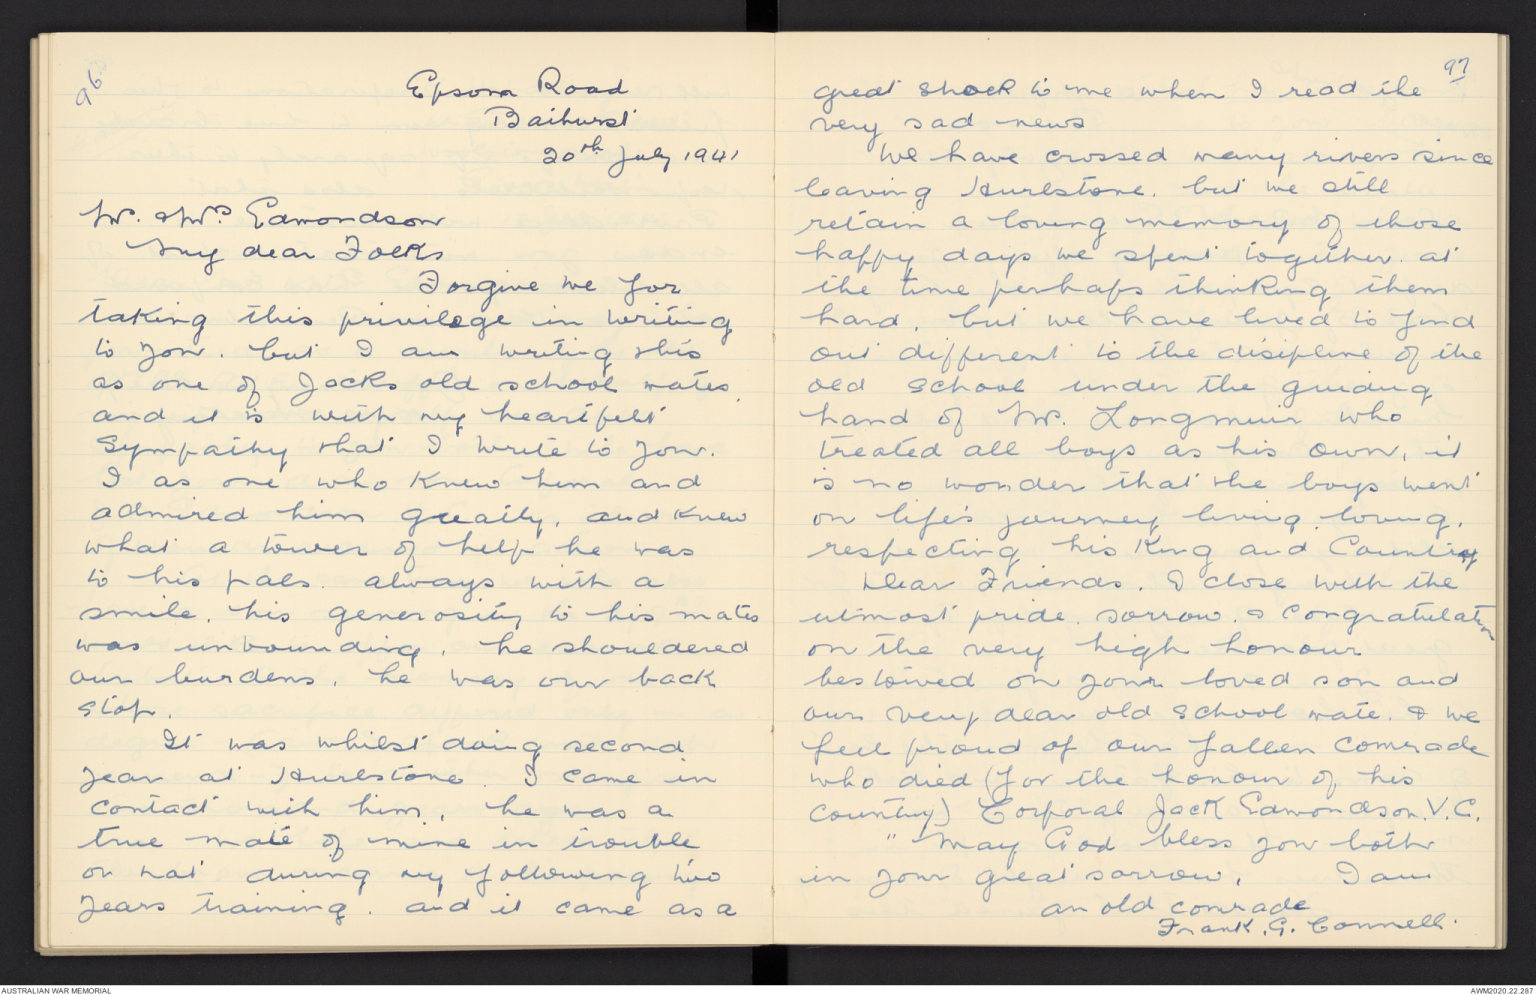 96
Epsom Road
Bathurst
20th July 1941
Mr. & Mrs Edmondson
My dear Folks
Forgive me for
taking this privilege in writing
to you. but I am writing this
as one of Jacks old school mates,
and it is with my heartfelt
Sympathy that I write to you.
I as one who knew him and
admired him greatly, and knew
what a tower of help he was
to his pals. always with a
smile. his generosity to his mates
was unbounding, he shouldered
our burdens, he was our back
stop.
It was whilst doing second
year at Hurlstone. I came in
contact with him, he was a
true mate of mine in trouble
or not during my following two
years training. and it came as a
97
great shock to me when I read the
very sad news
We have crossed many rivers since
leaving Hurlstone. but we still
retain a loving memory of those
happy days we spent together. at
the time perhaps thinking them
hard, but we have lived to find
out different to the disipline of the
old school under the guiding
hand of Mr. Longmuir who
treated all boys as his own, it
is no wonder that the boys went
on life's journey living, loving,
respecting his King and Country
Dear Friends. I close with the
utmost pride. sorrow. & congratulation
on the very high honour
bestowed on your loved son and
our very dear old school mate. & we
feel proud of our fallen comrade
who died (for the honour of his
country) Corporal Jack Edmondson. V.C.
" May God bless you both
in your great sorrow, I am
an old comrade
Frank. G. Connell.
AUSTRALIAN WAR MEMORIAL
AWM2020.22.287